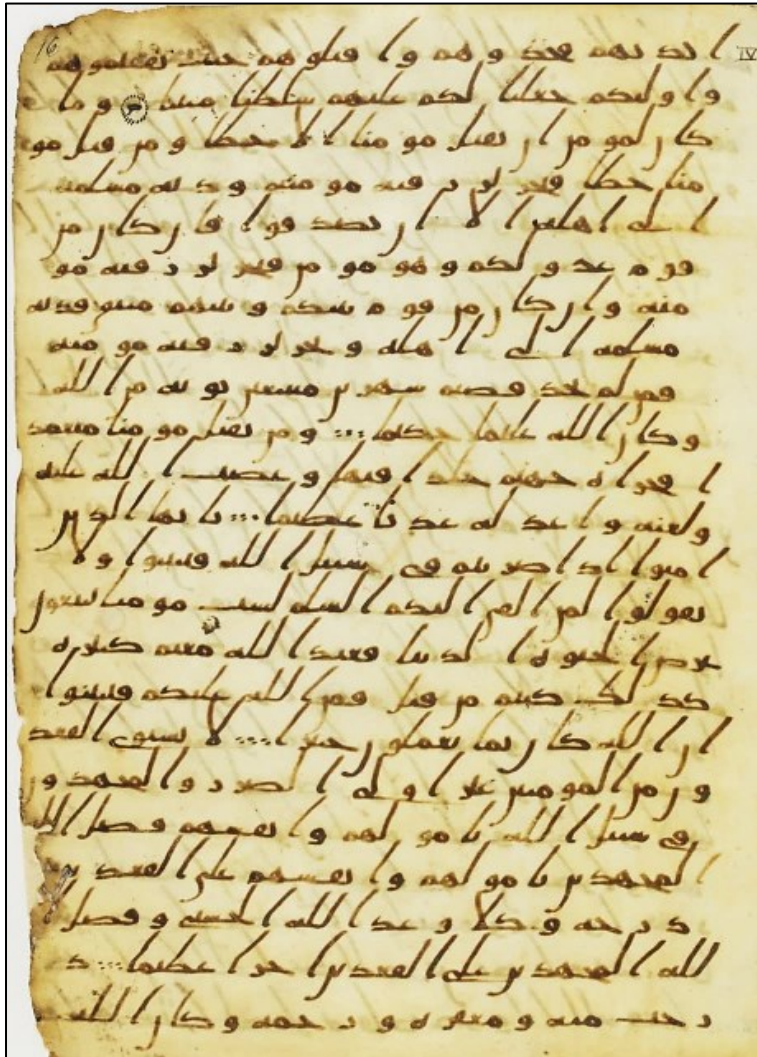 16
IV
ايديهم فخذوهم واقتلوهم حيث ثقفتموهم
واوليكم جعلنا لكم عليهم سلطنا مبينا وما
كان لمومن ان يقتل مومنا الا خطا ومن قتل مو
منا خطا فتحرير رقبه مومنه وديه مسلمه
الى اهله الا ان يصدقوا فان كان من
قوم عدو لكم وهو مومن فتحرير رقبه مو
منه وان كان من قوم بينكم وبينهم ميثق فديه
مسلمه الى اهله وتحرير رقبه مومنه
فمن لم يجد فصيم شهرين متتبعين توبه من الله
وكان الله عليما حكيما ومن يقتل مومنا متعمد
ا فجزاه جهنم خلدا فيها وغضب الله عليه
ولعنه واعد له عذبا عظيما يايها الذين
امنوا اذا ضربتم في سبيل الله فتبينوا ولا
تقولوا لمن القى اليكم السلم لست مومنا تبتغون
عرض الحيوه الدنيا فعند الله مغنم كثيره
كذلك كنتم من قبل فمن الله عليكم فتبينوا
ان الله كان بما تعملون خبيرا لا يستوي القعد
ون من المومنين غير اولى الضرر والمجهدون
في سبيل الله بامولهم وانفسهم فضل الله
المجهدين بامولهم وانفسهم على القعدين
درجه وكلا وعد الله الحسنى وفضل ا
لله المجهدين على القعدين اجرا عظيما د
رجت منه ومغفره ورحمه وكان الله